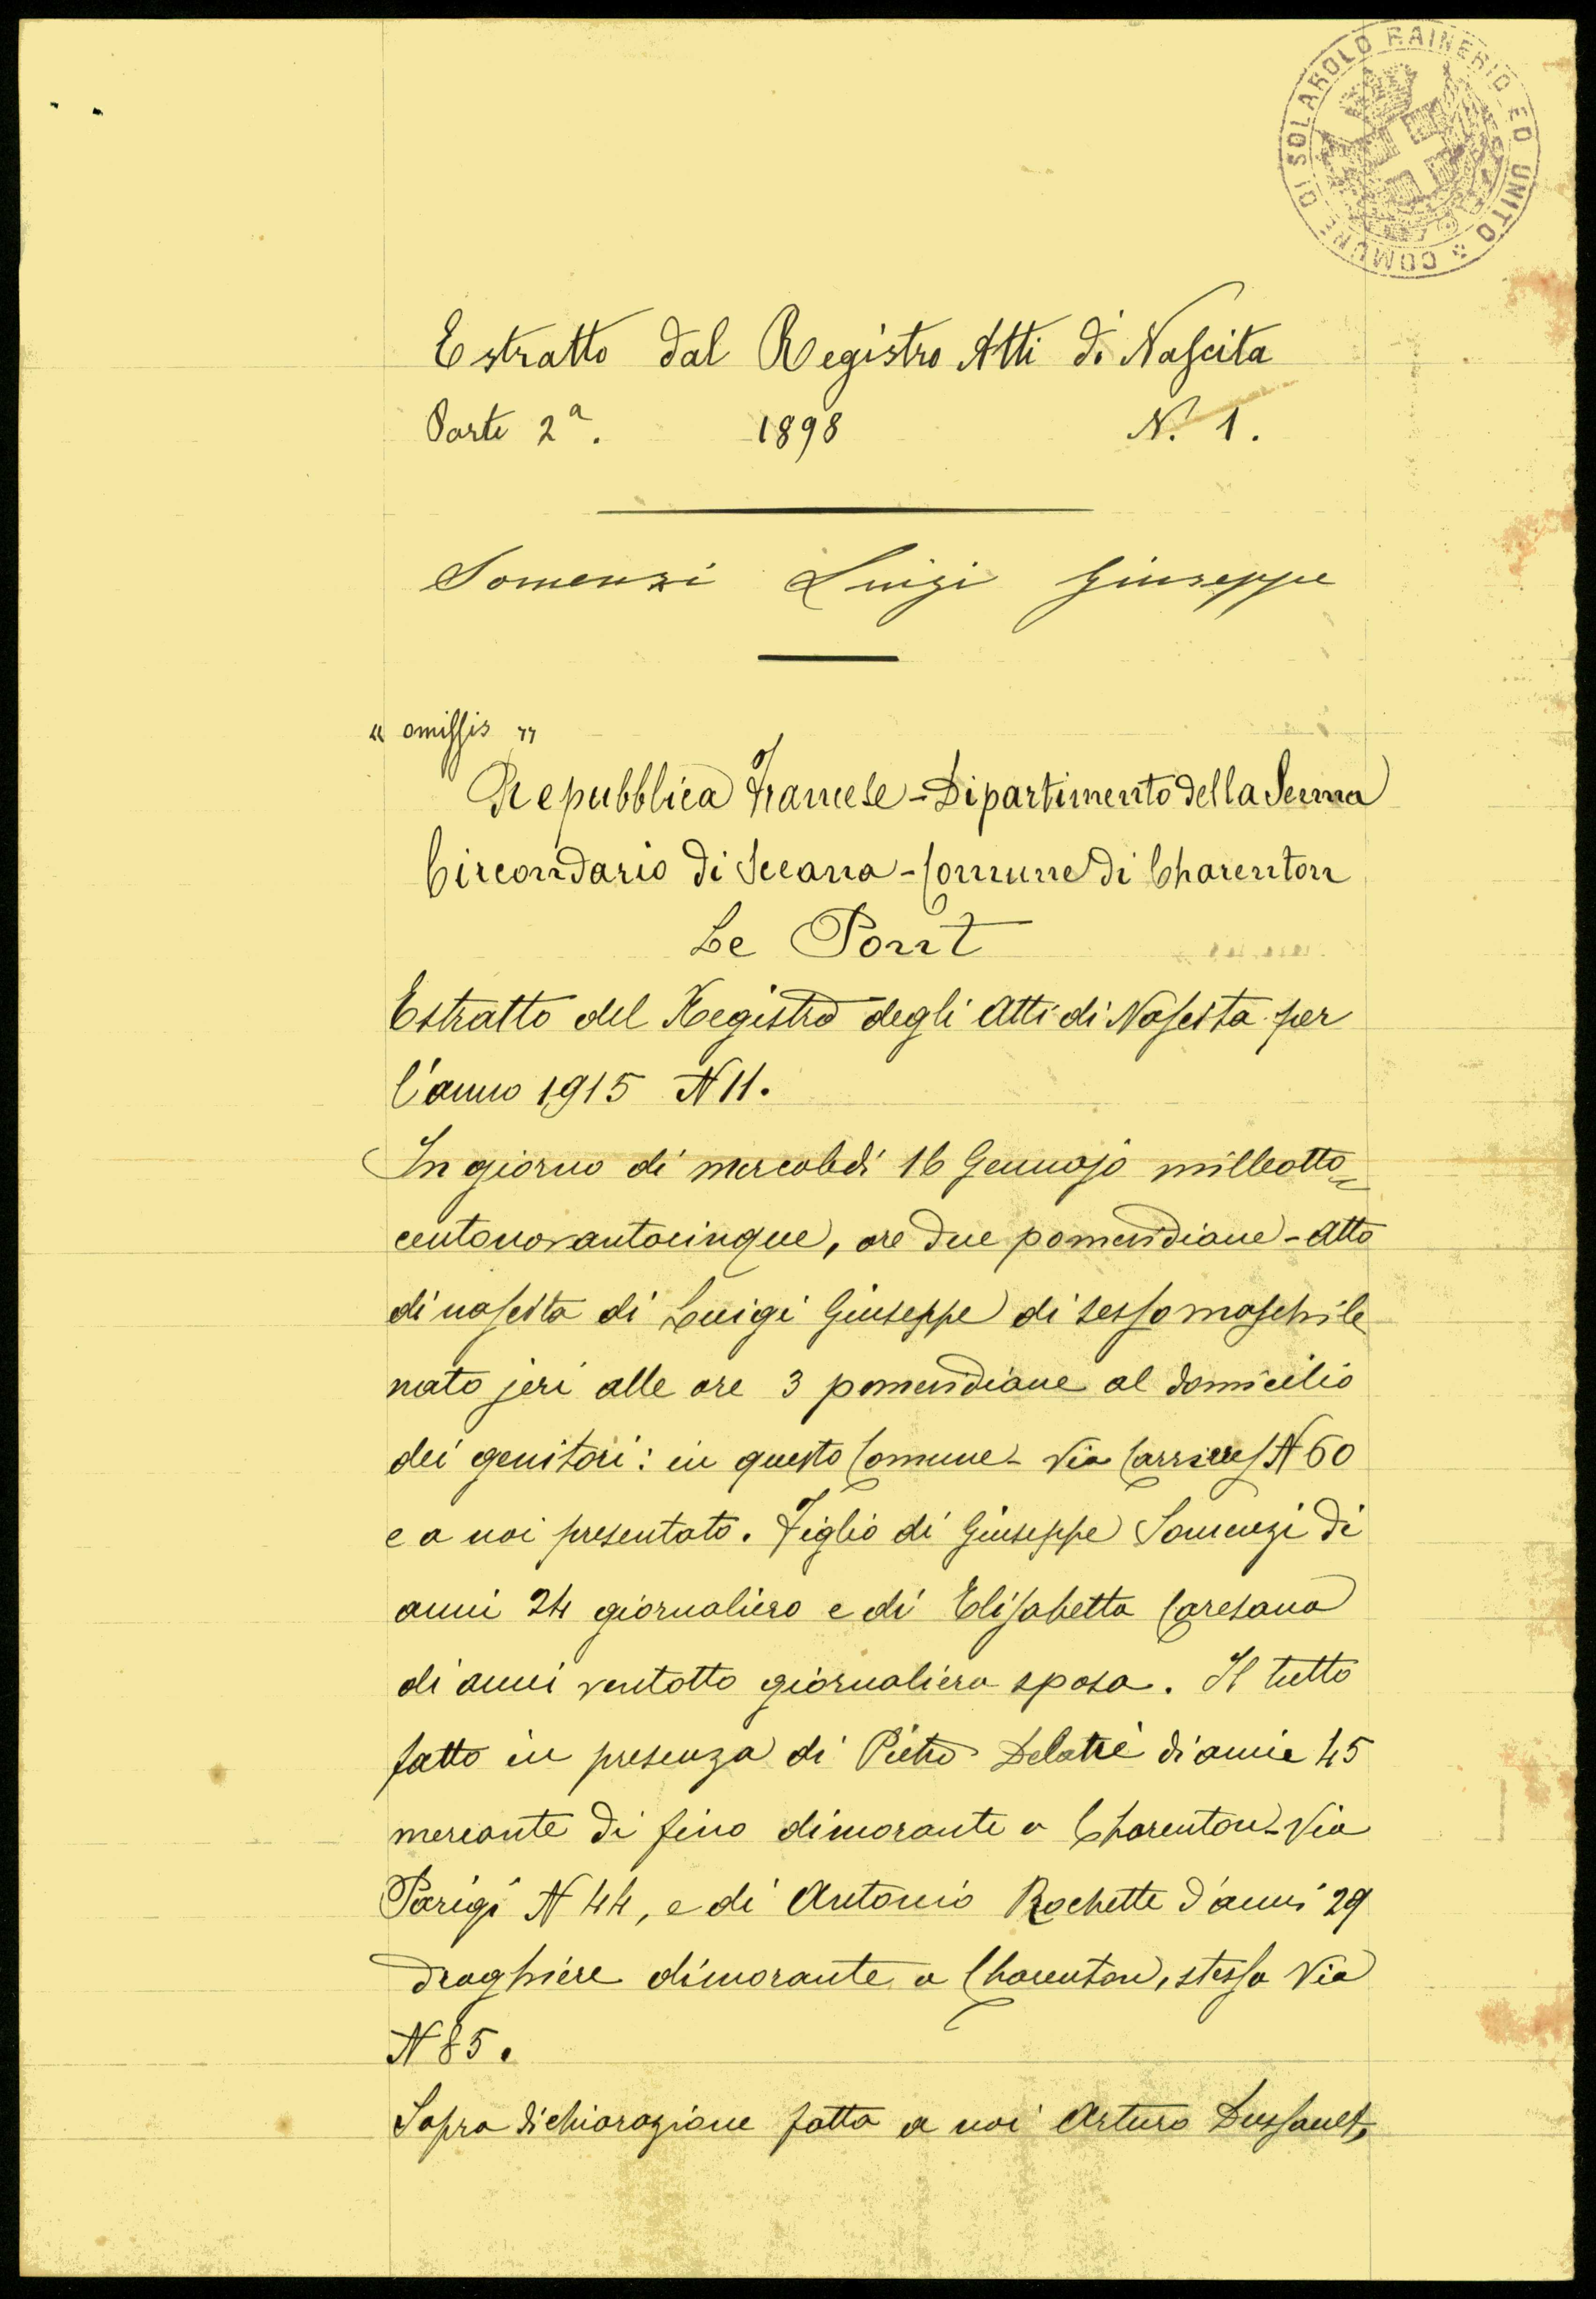 COMUNE DI SOLAROLO RAINERIO ED UNITO *
Estratto dal Registro Atti di Nascita
Parte 2ª. 1898 N. 1.
Somenzi Luigi Giuseppe
" omissis "
Repubblica Francese - Dipartimento della Senna
Circondario di Sceana - Comune di Charenton
Le Pont
Estratto del Registro degli Atti di Nascita per
l'anno 1915 N 11.
In giorno di mercoledì 16 Gennajo milleotto=
centonovantacinque, ore due pomeridiane - Atto
di nascita di Luigi Giuseppe di sesso maschile
nato jeri alle ore 3 pomeridiane al domicilio
dei genitori: in questo Comune - Via Carrieres N 60
e a noi presentato. Figlio di Giuseppe Somenzi di
anni 24 giornaliero e di Elisabetta Caresana
di anni ventotto giornaliera sposa. Il tutto
fatto in presenza di Pietro Delatrè di anni 45
mercante di fino dimorante a Charenton - Via
Parigi N 44, e di Antonio Rochette d'anni 29
droghiere dimorante a Charenton, stessa Via
N 85.
Sopra dichiarazione fatta a noi Arturo Dussault,